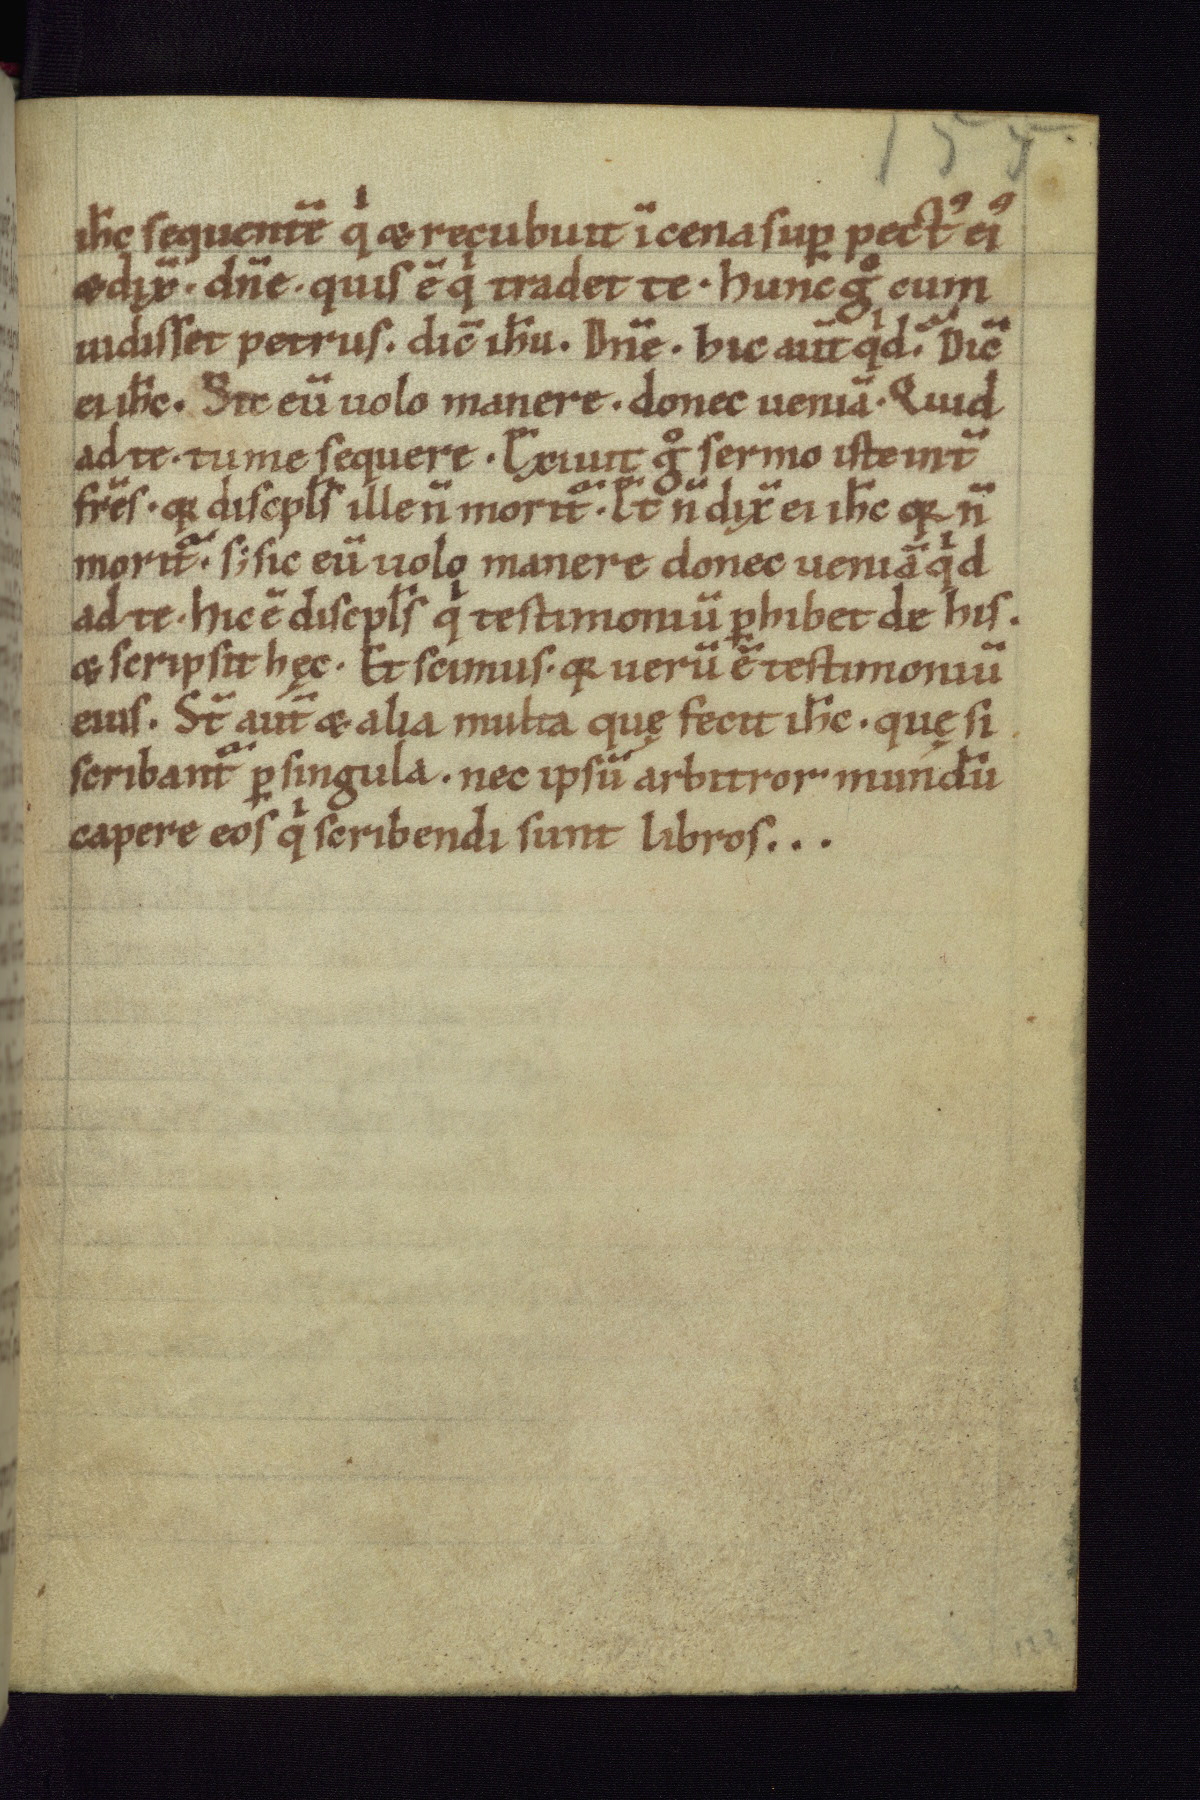 155.
ih̄c sequentē qⁱ & recubuit ī cena sup̱ pectꝰ eiꝰ
& dix̄. dn̄e. quis ē qⁱ tradet te. hunc gͦ cum
uidisset petrus. dic̄ ih̄u. Dn̄e. hic aut̄ qⁱd. Dic̄
ei ih̄c. Sic eū uolo manere. donec ueniā. Quid
ad te. tu me sequere. Exiuit gͦ sermo iste int̄
fr̄es. qꝛ discpl̄s ille n̄ morit᷑. Et n̄ dix̄ ei ih̄c qꝛ n̄
morit᷑. s; sic eū uolo manere donec ueniā qⁱd
ad te. hic ē discpl̄s qⁱ testimoniū ꝑhibet de his.
& scripsit hęc. Et scimus. qꝛ uerū ē testimoniū
eius. St̄ aut̄ & alia multa quę fecit ih̄c. quę si
scribant᷑ ꝑ singula. nec ipsū arbitror mundū
capere eos qⁱ scribendi sunt libros...
122